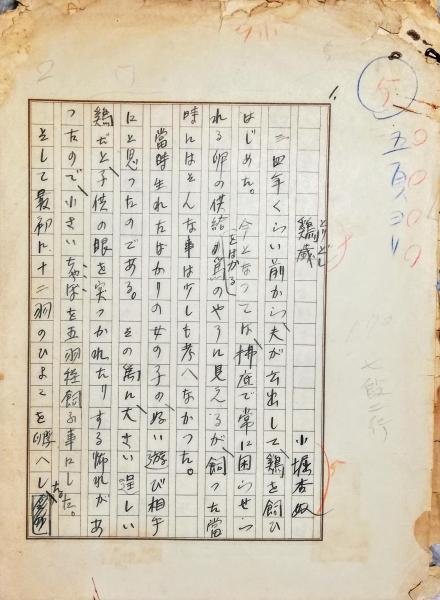 5
五頁ヨリ
とりどし
鶏歳
小堀杏奴
三四年くらい前から夫が云出して鶏を飼ひ
はじめた。今となつては拂底で常に困らせら
れる卵の供給をはかる為のやうに見えるが飼つた當
時にはそんな事は少しも考へなかつた。
當時生れたばかりの女の子の好い遊び相手
にと思つたのである。その為に大きい逞しい
鶏だと子供の眼を突つかれたりする怖れがあ
つたので小さいちゃぼを五羽程飼ふ事にした。
そして最初に十二羽のひよこを孵へした。
七段二行